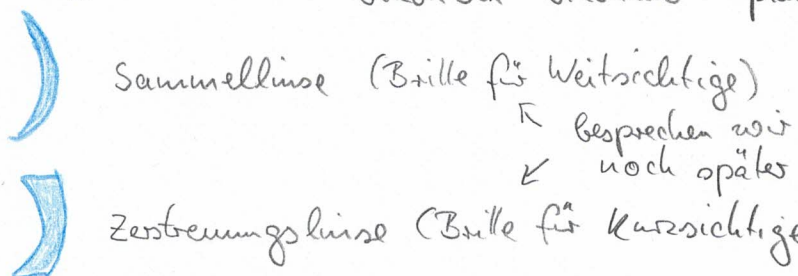 Sammellinse (Brille für Weitsichtige)
besprechen wir
noch später
Zerstreuungslinse (Brille für Kurzsichtige